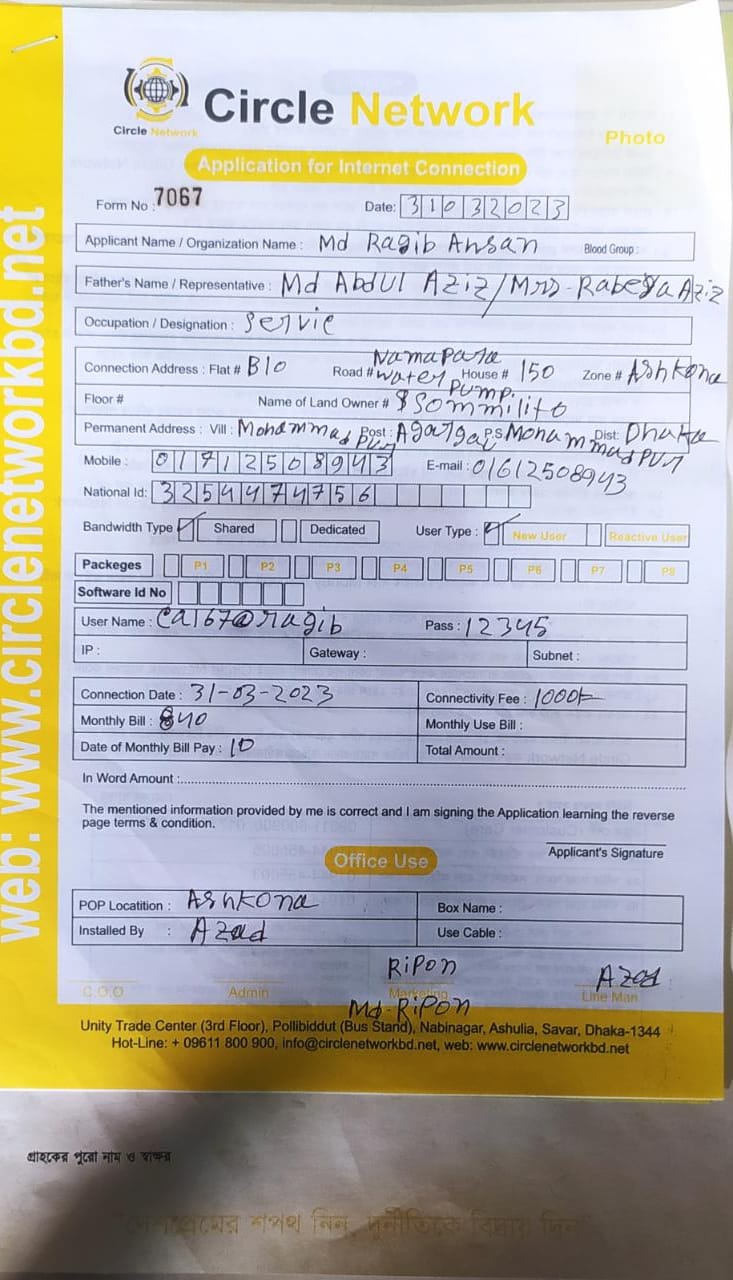 Circle Network
Circle Network
Photo
Application for Internet Connection
Form No : 7067 Date: 31032023
Applicant Name / Organization Name : Md Ragib Ahsan Blood Group :
Father's Name / Representative : Md Abdul Aziz/Mrs-Rabeya Aziz
Occupation / Designation : servic
Connection Address : Flat # B10 Road # Namapara water pump. House # 150 Zone # Ashkona
Floor # Name of Land Owner # Sommilito
Permanent Address : Vill : Mohammad pur Post : Agargao P.S Mohammadpur Dist: Dhaka
Mobile : 01712508943 E-mail : 01612508943
National Id: 3254474756
Bandwidth Type Shared Dedicated User Type : New User Reactive User
Packeges P1 P2 P3 P4 P5 P6 P7 P8
Software Id No
User Name : ca167@ragib Pass : 12345
IP : Gateway : Subnet :
Connection Date : 31-03-2023 Connectivity Fee : 1000/-
Monthly Bill : 840 Monthly Use Bill :
Date of Monthly Bill Pay : 10 Total Amount :
In Word Amount :
The mentioned information provided by me is correct and I am signing the Application learning the reverse
page terms & condition.
Applicant's Signature
Office Use
POP Locatition : Ashkona Box Name :
Installed By : Azad Use Cable :
Ripon Azad
C.O.O Admin Marketing Line Man
Md-Ripon
Unity Trade Center (3rd Floor), Pollibiddut (Bus Stand), Nabinagar, Ashulia, Savar, Dhaka-1344
Hot-Line: + 09611 800 900, info@circlenetworkbd.net, web: www.circlenetworkbd.net
web: www.circlenetworkbd.net
গ্রাহকের পুরো নাম ও স্বাক্ষর
দেশপ্রেমের শপথ নিন, দুর্নীতিকে বিদায় দিন